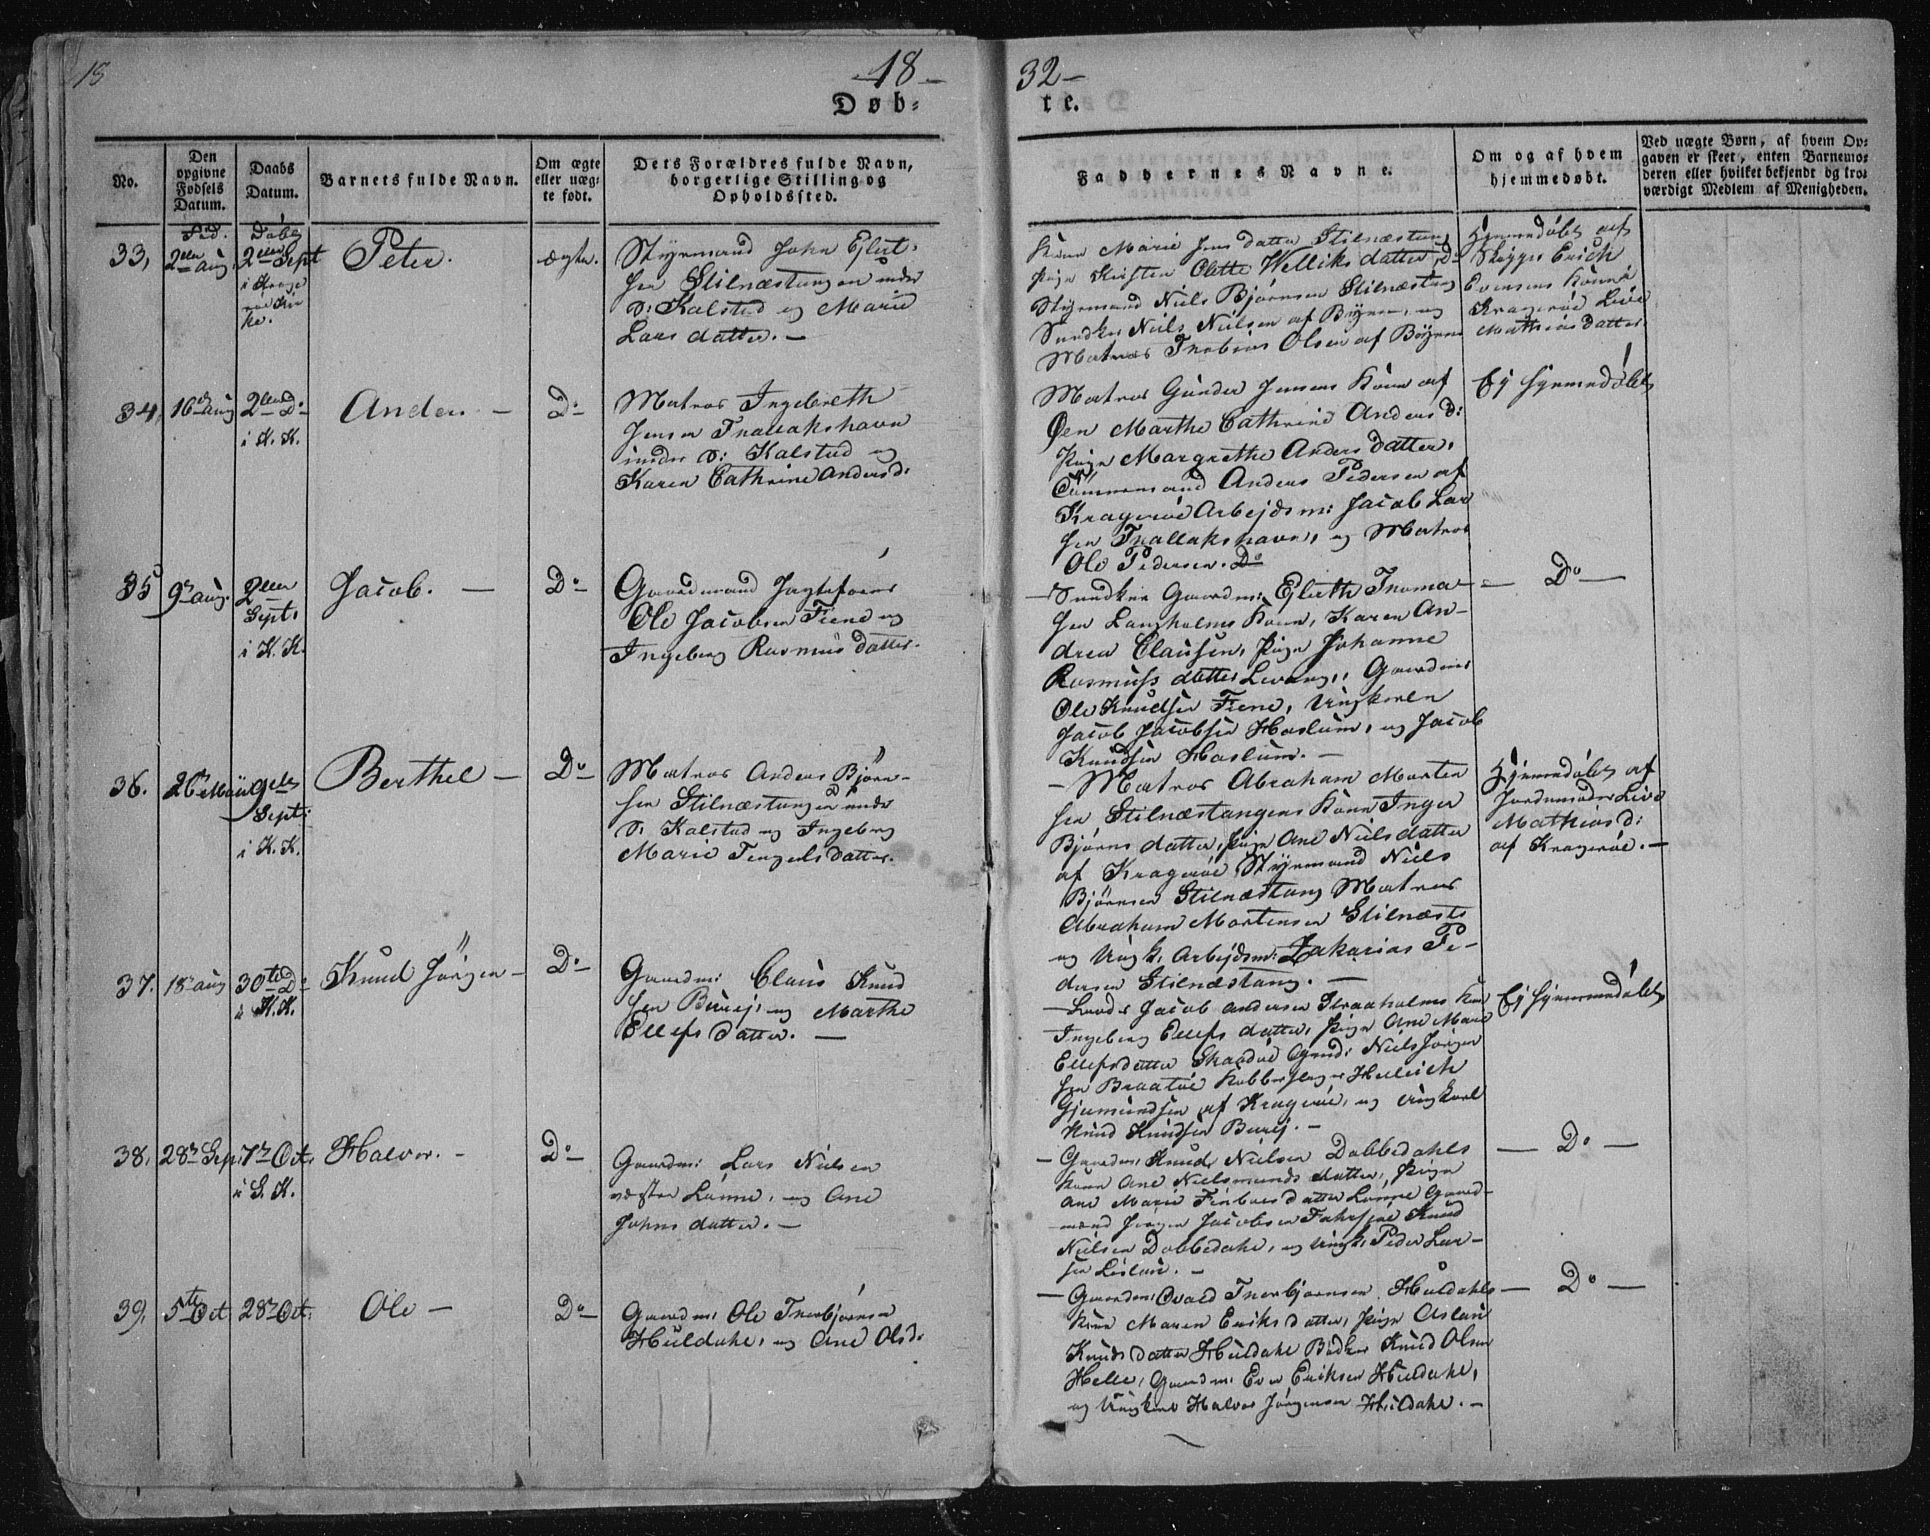 18
18 –
32 –
Døb-
te.
No.
Den opgivne Fødsels Datum.
Daabs Datum.
Barnets fulde Navn.
Om ægte eller uæg-te født.
Dets Forældres fulde Navn, borgerlige Stilling og Opholdssted.
Faddernes Navne.
Om og af hvem hjemmedøbt.
Ved uægte Børn, af hvem Op-gaven er skeet, enten Barnemo-deren eller hvilket bekjendt og tro-værdigt Medlem af Menigheden.
Fød.
Døbt
33,
2den Aug.
2den Sept
i Krage
röe Kir
ke.
Peter.
ægte.
Styrmand John Ejlert-
sen Stilnæstangen under
G: Kalstad og Marie
Lars datter. –
Kone Marie Jens datter Stilnæstang
Pige Kirsten Olette Welliks datter, D:
Styrmand Niels Bjørnsen Stilnæstang
Snedker Niels Nielsen af Byen, og
Matros Thobias Olsen af Byen
Hjemmedøbt af
Skipper Erich
Evensens Kone i
Kragerøe Live
Mathias datter.
34,
16de Aug
2den Do
i K. K.
Anders –
Do
Matros Ingebreth
Jensen Thallakshavn
under G: Kalstad og
Karen Cathrine Anders d:
Matros Gunder Jensens Kone af
Øen Marthe Cathrine Anders D:
Pige Margrethe Anders datter,
Tømmermand Anders Pedersen af
Kragerøe Arbejdsm: Jacob Lar
sen Thallakshavn, og Matros
Ole Pedersen. Do
Ej hjemmedøbt
35
9de Aug.
2den
Sept:
i K. K.
Jacob. –
Do
Gaardmand
Ole Jacobsen Fiene og
Ingeborg Rasmus datter.
– Snedker Gaardm: Ejlerth Thoma
sen Langholms Kone, Karen An-
drea Clausen, Pige Johanne
Rasmuss datter Levang, Gaardm:
Ole Knudsen Fiene, Ungkarlen
Jacob Jacobsen Haslum, og Jacob
Knudsen Haslum. –
– Do –
36.
26de Maii
9de
Sept:
i K. K.
Berthel –
Do
Matros Anders Bjørn-
sen Stilnæstangen under
G: Kalstad og Ingeborg
Marie Tengels datter.
– Matros Abraham Morten
sen Stilnæstangens Kone Inger
Bjørns datter, Pige Ane Niels datter
af Kragerøe, Styrmand Niels
Bjørnsen Stilnæstang Matros
Abraham Mortensen Stilnæsts
og Ungk. Arbejdsm: Zakarias Pe-
dersen Stilnæstang. –
Hjemmedøbt af
Jordemoder Live
Mathias d:
af Kragerøe. –
37.
18de Aug
30te Do
i K. K.
Knud Jörgen –
Do
Gaardm: Claus Knud
sen Burej, og Marthe
Ellefs datter. –
– Lods Jacob Andersen Straaholms Kone
Ingeborg Ellefs datter, Pige Ane Marie
Ellefsdatter Skaadøe Niels Jörgen
sen Braatøe Kobberslager Hellrich
Gjermundsen af Kragerøe, og Ungkarl
Knud Knudsen Burej. –
Ej hjemmedøbt
38.
28de Sep:
7de Oct.
i S. K.
Halvor. –
Do
Gaardm: Lars Nielsen
væstre Lønne, og Ane
Johns datter. –
– Gaardm: Knud Nielsen Dobbedahls
Kone Ane Nielsmunds datter, Pige
Ane Marie Finbos datter Lønne Gaard-
mand Jørgen Jacobsen Knud
Nielsen Dobbedahl, og Ungk: Peder Lar-
sen –
– Do –
39,
5te Oct
28de Oct.
Ole –
Do
Gaardm: Ole Thorbjörnsen
Huldahl, og Ane Ols d:
– Gaardm: Thorbjørnsen Huldahls
Kone Maren Eriks datter, Pige Aslau
Knuds datter Huldahl Bødker Knud Olsen
Helle, Gaardm: Even Eriksen Huldahl,
og Ungkarl Halvor Jörgensen Huldahl. –
– Do –